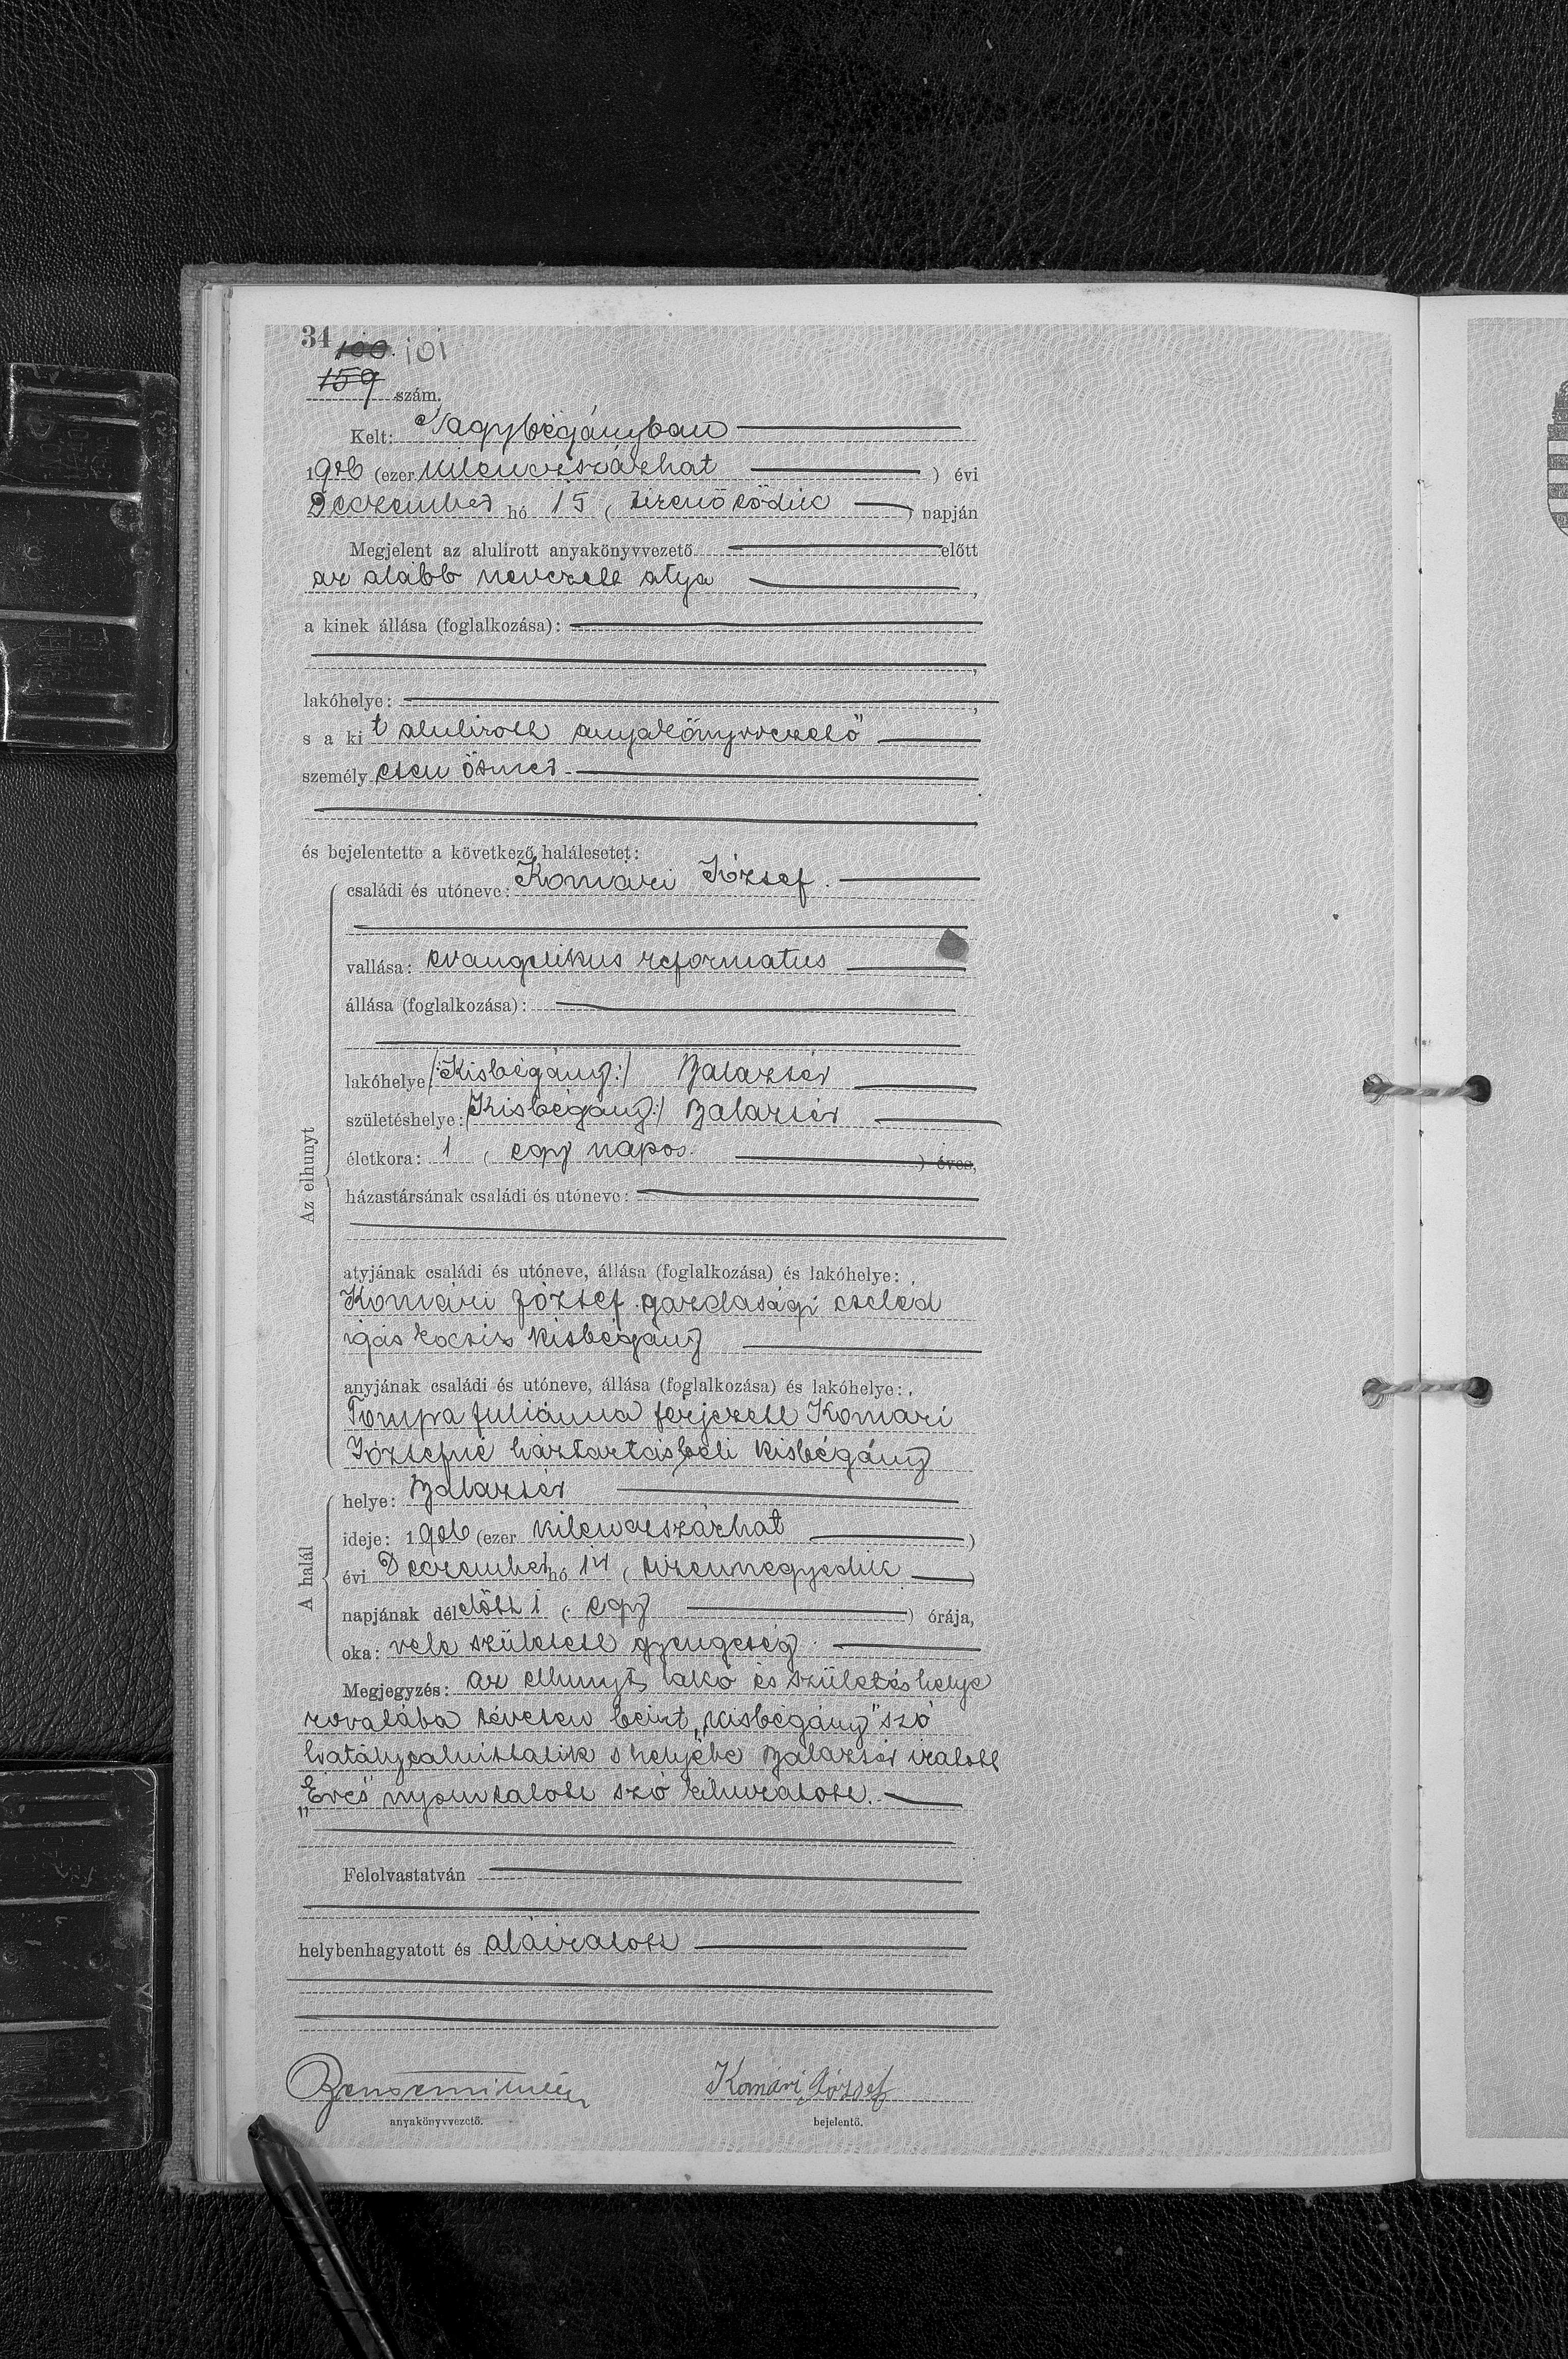 34
100. 101
159 szám.
Kelt: Nagybégányban
1906 (ezer kilenczszázhat ) évi
Deczember hó 15 ( tizenötödik ) napján
Megjelent az alulirott anyakönyvvezető előtt
az alább nevezett atya ,
a kinek állása (foglalkozása):
,
lakóhelye: ,
s a kit alulirott anyakönyvvezető
személyesen ösmer
.
és bejelentette a következő halálesetet:
családi és utóneve: Komári József.
vallása: evangelikus reformatus
állása (foglalkozása):
lakóhelye /:Kisbégány:/ Balazsér
születéshelye: /Kisbégány:/ Balazsér
életkora: 1 ( egy napos. ) éves,
házastársának családi és utóneve:
Az elhunyt
atyjának családi és utóneve, állása (foglalkozása) és lakóhelye:
Komári József gazdasági cseléd
igás kocsis kisbégány
anyjának családi és utóneve, állása (foglalkozása) és lakóhelye:
Tompa Juliánna férjezett Komári
Józsefné háztartásbeli kisbégány
A halál
helye: Balazsér
ideje: 1906 (ezer kilenczszázhat )
évi Deczember hó 14 ( tizennegyedik )
napjának délelőtt 1 ( egy ) órája,
oka: vele született gyengeség
Megjegyzés: az elhunyt lakó és születéshelye
rovatába tévesen beirt „kisbégány" szó
helyébe Balazsér iratott
„Éves" nyomtatott szó kihuzatott.
Felolvastatván
helybenhagyatott és aláiratott
anyakönyvvezető.
Komári József
bejelentő.